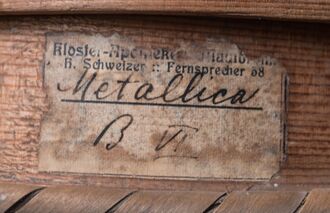 Kloster-Apotheke Maulbronn
H. Schweizer :: Fernsprecher 58
Metallica
B VI